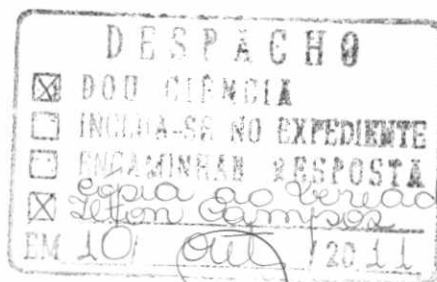 DESPACHO
DOU CIÊNCIA
INCLUA-SE NO EXPEDIENTE
ENCAMINHAR RESPOSTA
Copia ao Veread
Campos
EM 10 / out / 2011